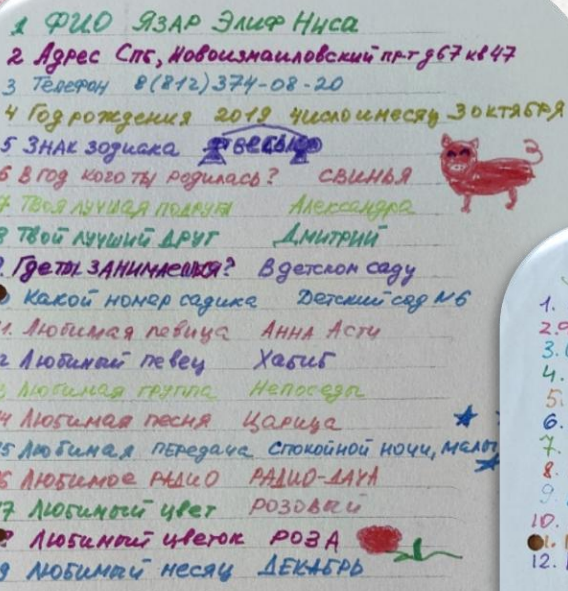 1 ФИО ЯЗАР ЭЛИФ НИСА
2 Адрес СПб, Новоизмаиловский пр-т д67 кв47
3 Телефон 8(812)374-08-20
4 Год рождения 2019 число и месяц 3 октября
5 Знак зодиака весы
6 В год кого ты родилась? СВИНЬЯ
7 Твоя лучшая подруга Александра
8 Твой лучший друг Дмитрий
9. Где ты занимаешься? В детском саду
Какой номер садика Детский сад №6
1. Любимая певица Анна Асти
2 Любимый певец Хабиб
3 Любимая группа Непоседы
4 Любимая песня Царица
5 Любимая передача Спокойной ночи, малы
6 Любимое радио РАДИО-ДАЧА
7 Любимый цвет РОЗОВЫЙ
8 Любимый цветок РОЗА
9 Любимый месяц ДЕКАБРЬ
1.
2.
3.
4.
5.
6.
7.
8.
9.
10.
1.
12.